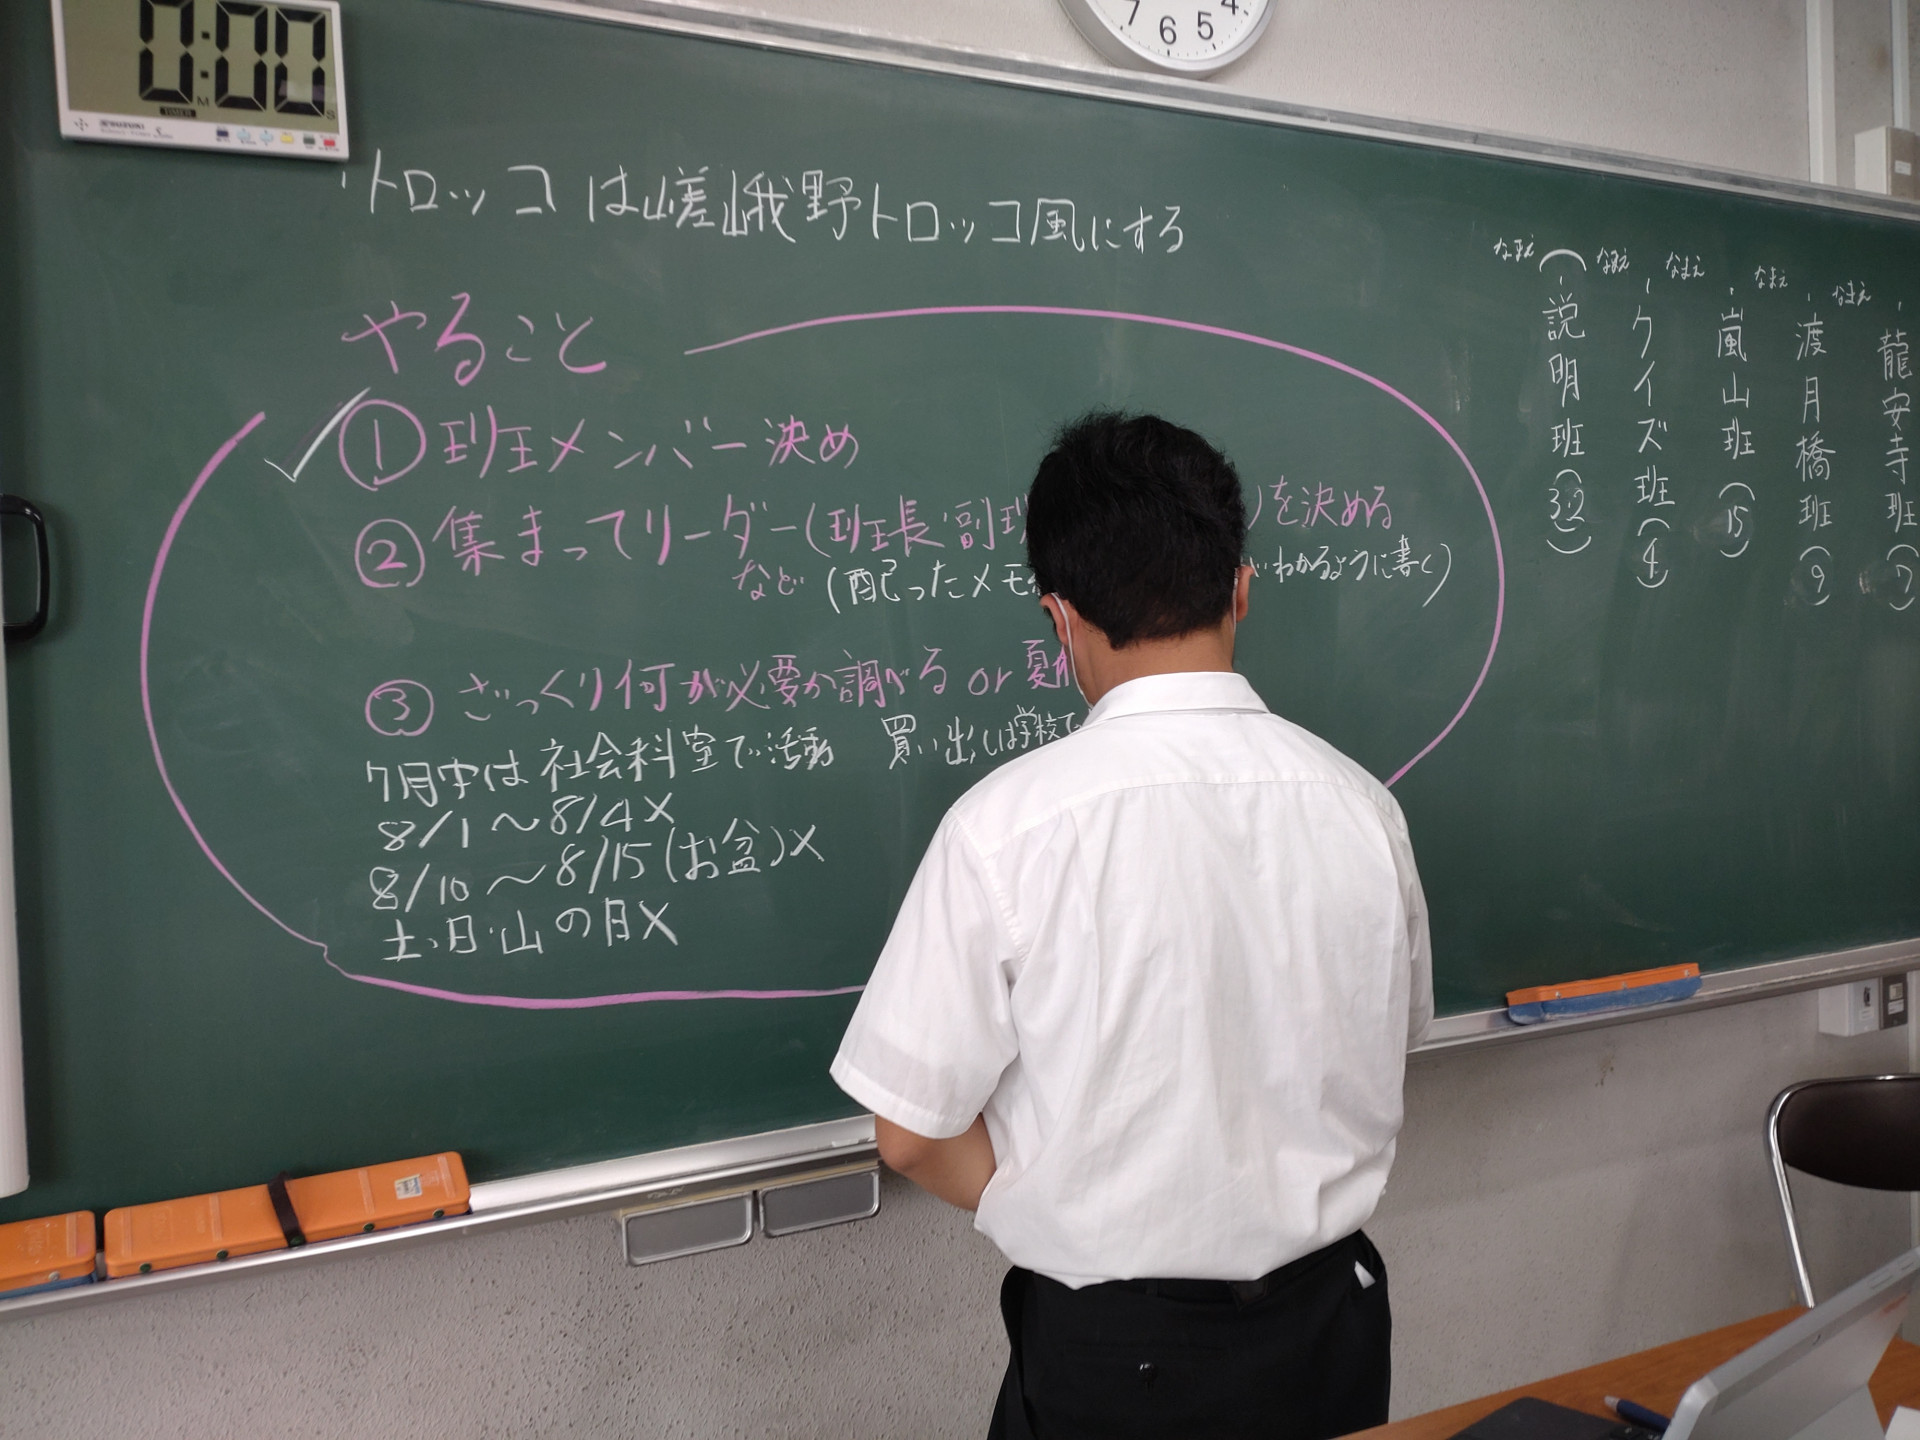 0:00
M
S
TIMER
SUZUKI
7 6 5 4
・トロッコは嵯峨野トロッコ風にする
やること
①班メンバー決め
②集まってリーダー(班長・副班
)を決める
など(配ったメモ
わかるように書く)
③ざっくり何が必要か調べる or 夏
7月中は社会科室で活動 買い出しは学校で
8/1〜8/4×
8/10〜8/15(お盆)×
土・日・山の日×
なまえ
・説明班(32)
なまえ
・クイズ班(4)
なまえ
・嵐山班(15)
なまえ
・渡月橋班(9)
なまえ
・龍安寺班(7)